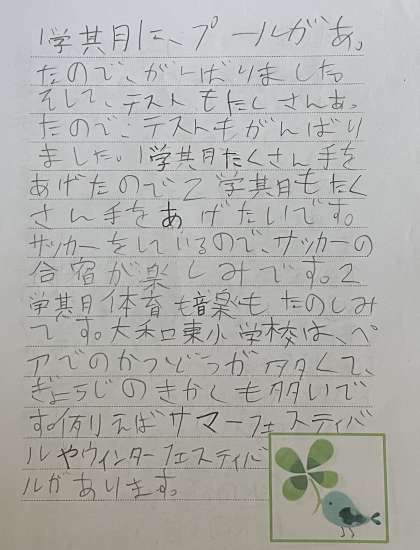 1学期に、プールがあっ
たので、がんばりました。
そして、テストもたくさんあっ
たので、テストもがんばり
ました。1学期たくさん手を
あげたので2学期もたく
さん手をあげたいです。
サッカーをしているので、サッカーの
合宿が楽しみです。2
学期体育も音楽もたのしみ
です。大和東小学校は、ペ
アでのかつどうが多くて、
ぎょうじのきかくも多いで
す。例えばサマーフェスティバ
ルやウィンターフェスティバ
ルがあります。